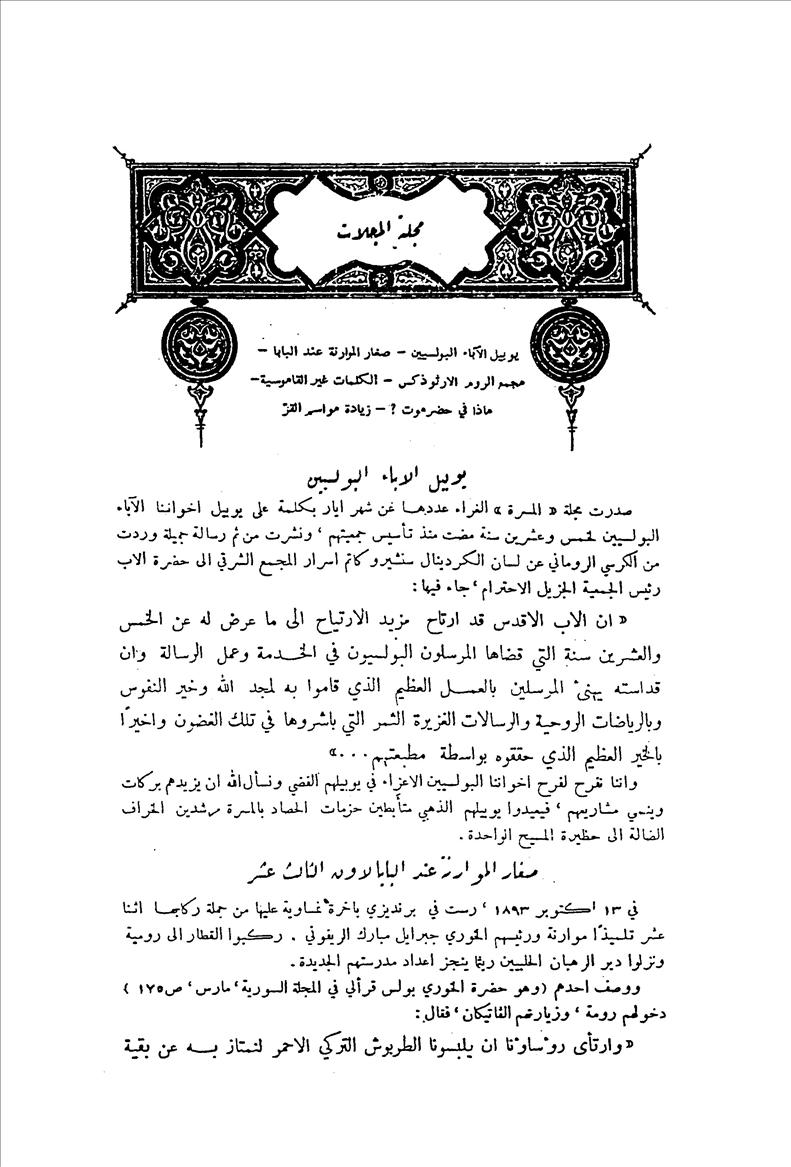 مجلة المجلات
يوبيل الآباء البولسيين – صغار الموارنة عند البابا –
مجمع الروم الارثوذكس – الكلمات غير القاموسية –
ماذا في حضرموت ? – زيادة مواسم القز
يوبيل الاباء البولسيين
صدرت مجلة « المسرة » الغراء عددهــا عن شهر ايار بكلمة على يوبيل اخواننا الآباء
البولسيين لخمس وعشرين سنة مضت منذ تأسيس جمعيتهم ، ونشرت من ثم رسالة جميلة وردت
من الكرسي الروماني عن لسان الكردينال سنشيرو كاتم اسرار المجمع الشرقي الى حضرة الاب
رئيس الجمعية الجزيل الاحترام ، جاء فيها :
« ان الاب الاقدس قد ارتاح مزيد الارتياح الى ما عرض له عن الخمس
والعشرين سنة التي قضاها المرسلون البولسيون في الخدمة وعمل الرسالة وان
قداسته يهنئ المرسلين بالعمل العظيم الذي قاموا به لمجد الله وخير النفوس
وبالرياضات الروحية والرسالات الغزيرة الثمر التي باشروها في تلك الغضون واخيرًا
بالخير العظيم الذي حققوه بواسطة مطبعتهم . . . »
واننا نفرح لفرح اخواننا البولسيين الاعزاء في يوبيلهم الفضي ونسأل الله ان يزيدهم بركات
وينمي مشاريعهم ، فيعيدوا يوبيلهم الذهبي متأبطين حزمات الحصاد بالمسرة مرشدين الخراف
الضالة الى حظيرة المسيح الواحدة .
صغار الموارنة عند البابا لاون الثالث عشر
في ١٣ اكتوبر ١٨٩٣ ، رست في برنديزي باخرة نمساوية عليها من جملة ركابها اثنا
عشر تلميذًا موارنة ورئيسهم الخوري جبرايل مبارك الريفوني . ركبوا القطار الى رومية
ونزلوا دير الرهبان الحلبيين ريثما ينجز اعداد مدرستهم الجديدة .
ووصف احدهم (وهو حضرة الخوري بولس قرألي في المجلة السورية ، مارس ، ص ١٧٥ )
دخولهم رومة ، وزيارتهم الفاتيكان ، فقال :
« وارتأى روءساوءنا ان يلبسونا الطربوش التركي الاحمر لنمتاز بــه عن بقية